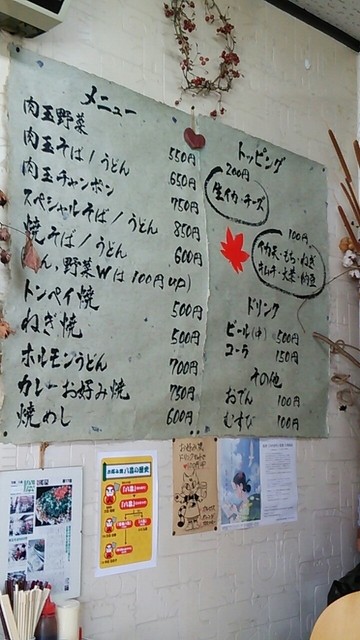 メニュー
肉玉野菜 550円
肉玉そば/うどん 650円
肉玉チャンポン 750円
スペシャルそば/うどん 850円
焼そば/うどん 600円
ん,野菜Wは100円up)
トンペイ焼 500円
ねぎ焼 500円
ホルモンうどん 700円
カレーお好み焼 750円
焼めし 600円
トッピング
200円
生イカ・チーズ
100円
イカ天・もち・ねぎ
キムチ・大葉・納豆
ドリンク
ビール(中) 500円
コーラ 150円
その他
おでん 100円
むすび 100円
の歴史
お好み焼